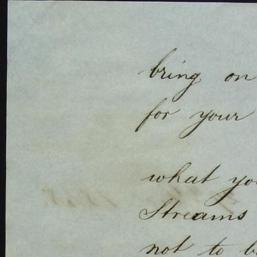 bring on
for your
what yo
Streams
not to b